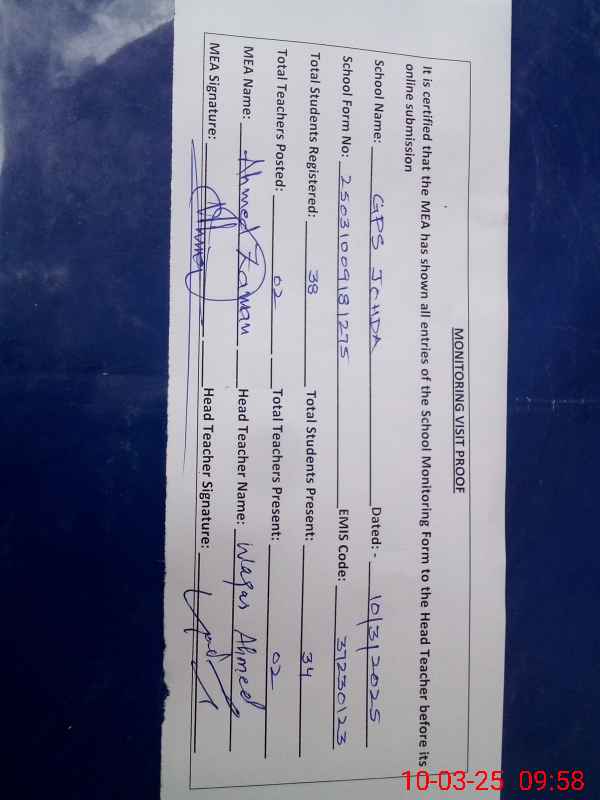 MONITORING VISIT PROOF
It is certified that the MEA has shown all entries of the School Monitoring Form to the Head Teacher before its
online submission
School Name: GPS JCHDA Dated: - 10/3/2025
School Form No: 25031009181275 EMIS Code: 37230123
Total Students Registered: 38 Total Students Present: 34
Total Teachers Posted: 02 Total Teachers Present: 02
MEA Name: Ahmed Zaman Head Teacher Name: Waqas Ahmed
MEA Signature: Head Teacher Signature:
10-03-25 09:58